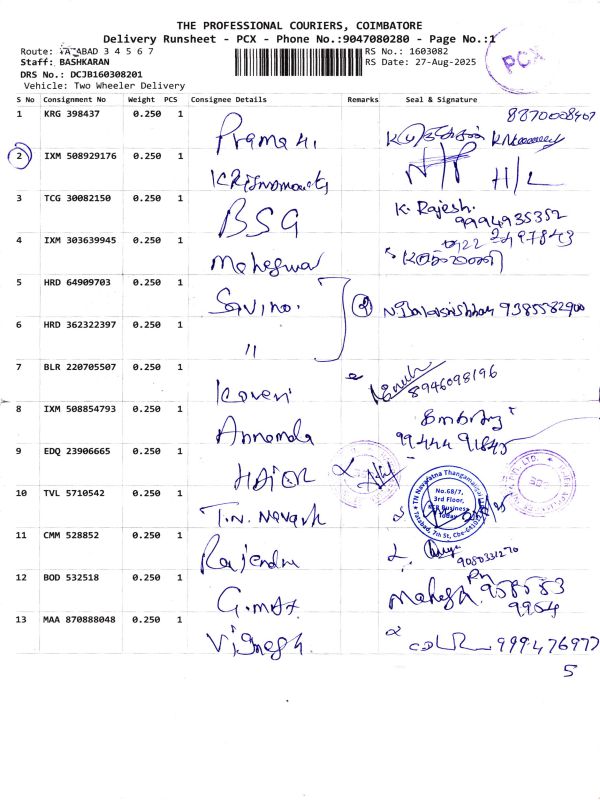 THE PROFESSIONAL COURIERS, COIMBATORE
Delivery Runsheet - PCX - Phone No.:9047080280 - Page No.:1
Route: TATABAD 3 4 5 6 7 RS No.: 1603082
Staff: BASHKARAN RS Date: 27-Aug-2025
DRS No.: DCJB160308201
Vehicle: Two Wheeler Delivery
PCX
S No Consignment No Weight PCS Consignee Details Remarks Seal & Signature
1 KRG 398437 0.250 1 8870008407
2 IXM 508929176 0.250 1 H/L
3 TCG 30082150 0.250 1 BSG K. Rajesh. 9994935352
4 IXM 303639945 0.250 1 Maheswar
5 HRD 64909703 0.250 1 9385582900
6 HRD 362322397 0.250 1 "
7 BLR 220705507 0.250 1 Kaveri 8946098196
8 IXM 508854793 0.250 1
9 EDQ 23906665 0.250 1
10 TVL 5710542 0.250 1 T.N. Navark
TN Navaratna Thangamaligai
No.68/7,
3rd Floor,
Tatabad, 7th St, Cbe-641012
11 CMM 528852 0.250 1 Rajendra 9080331270
12 BOD 532518 0.250 1 G.max Mahesh
13 MAA 870888048 0.250 1 Vignesh. 999476977
5